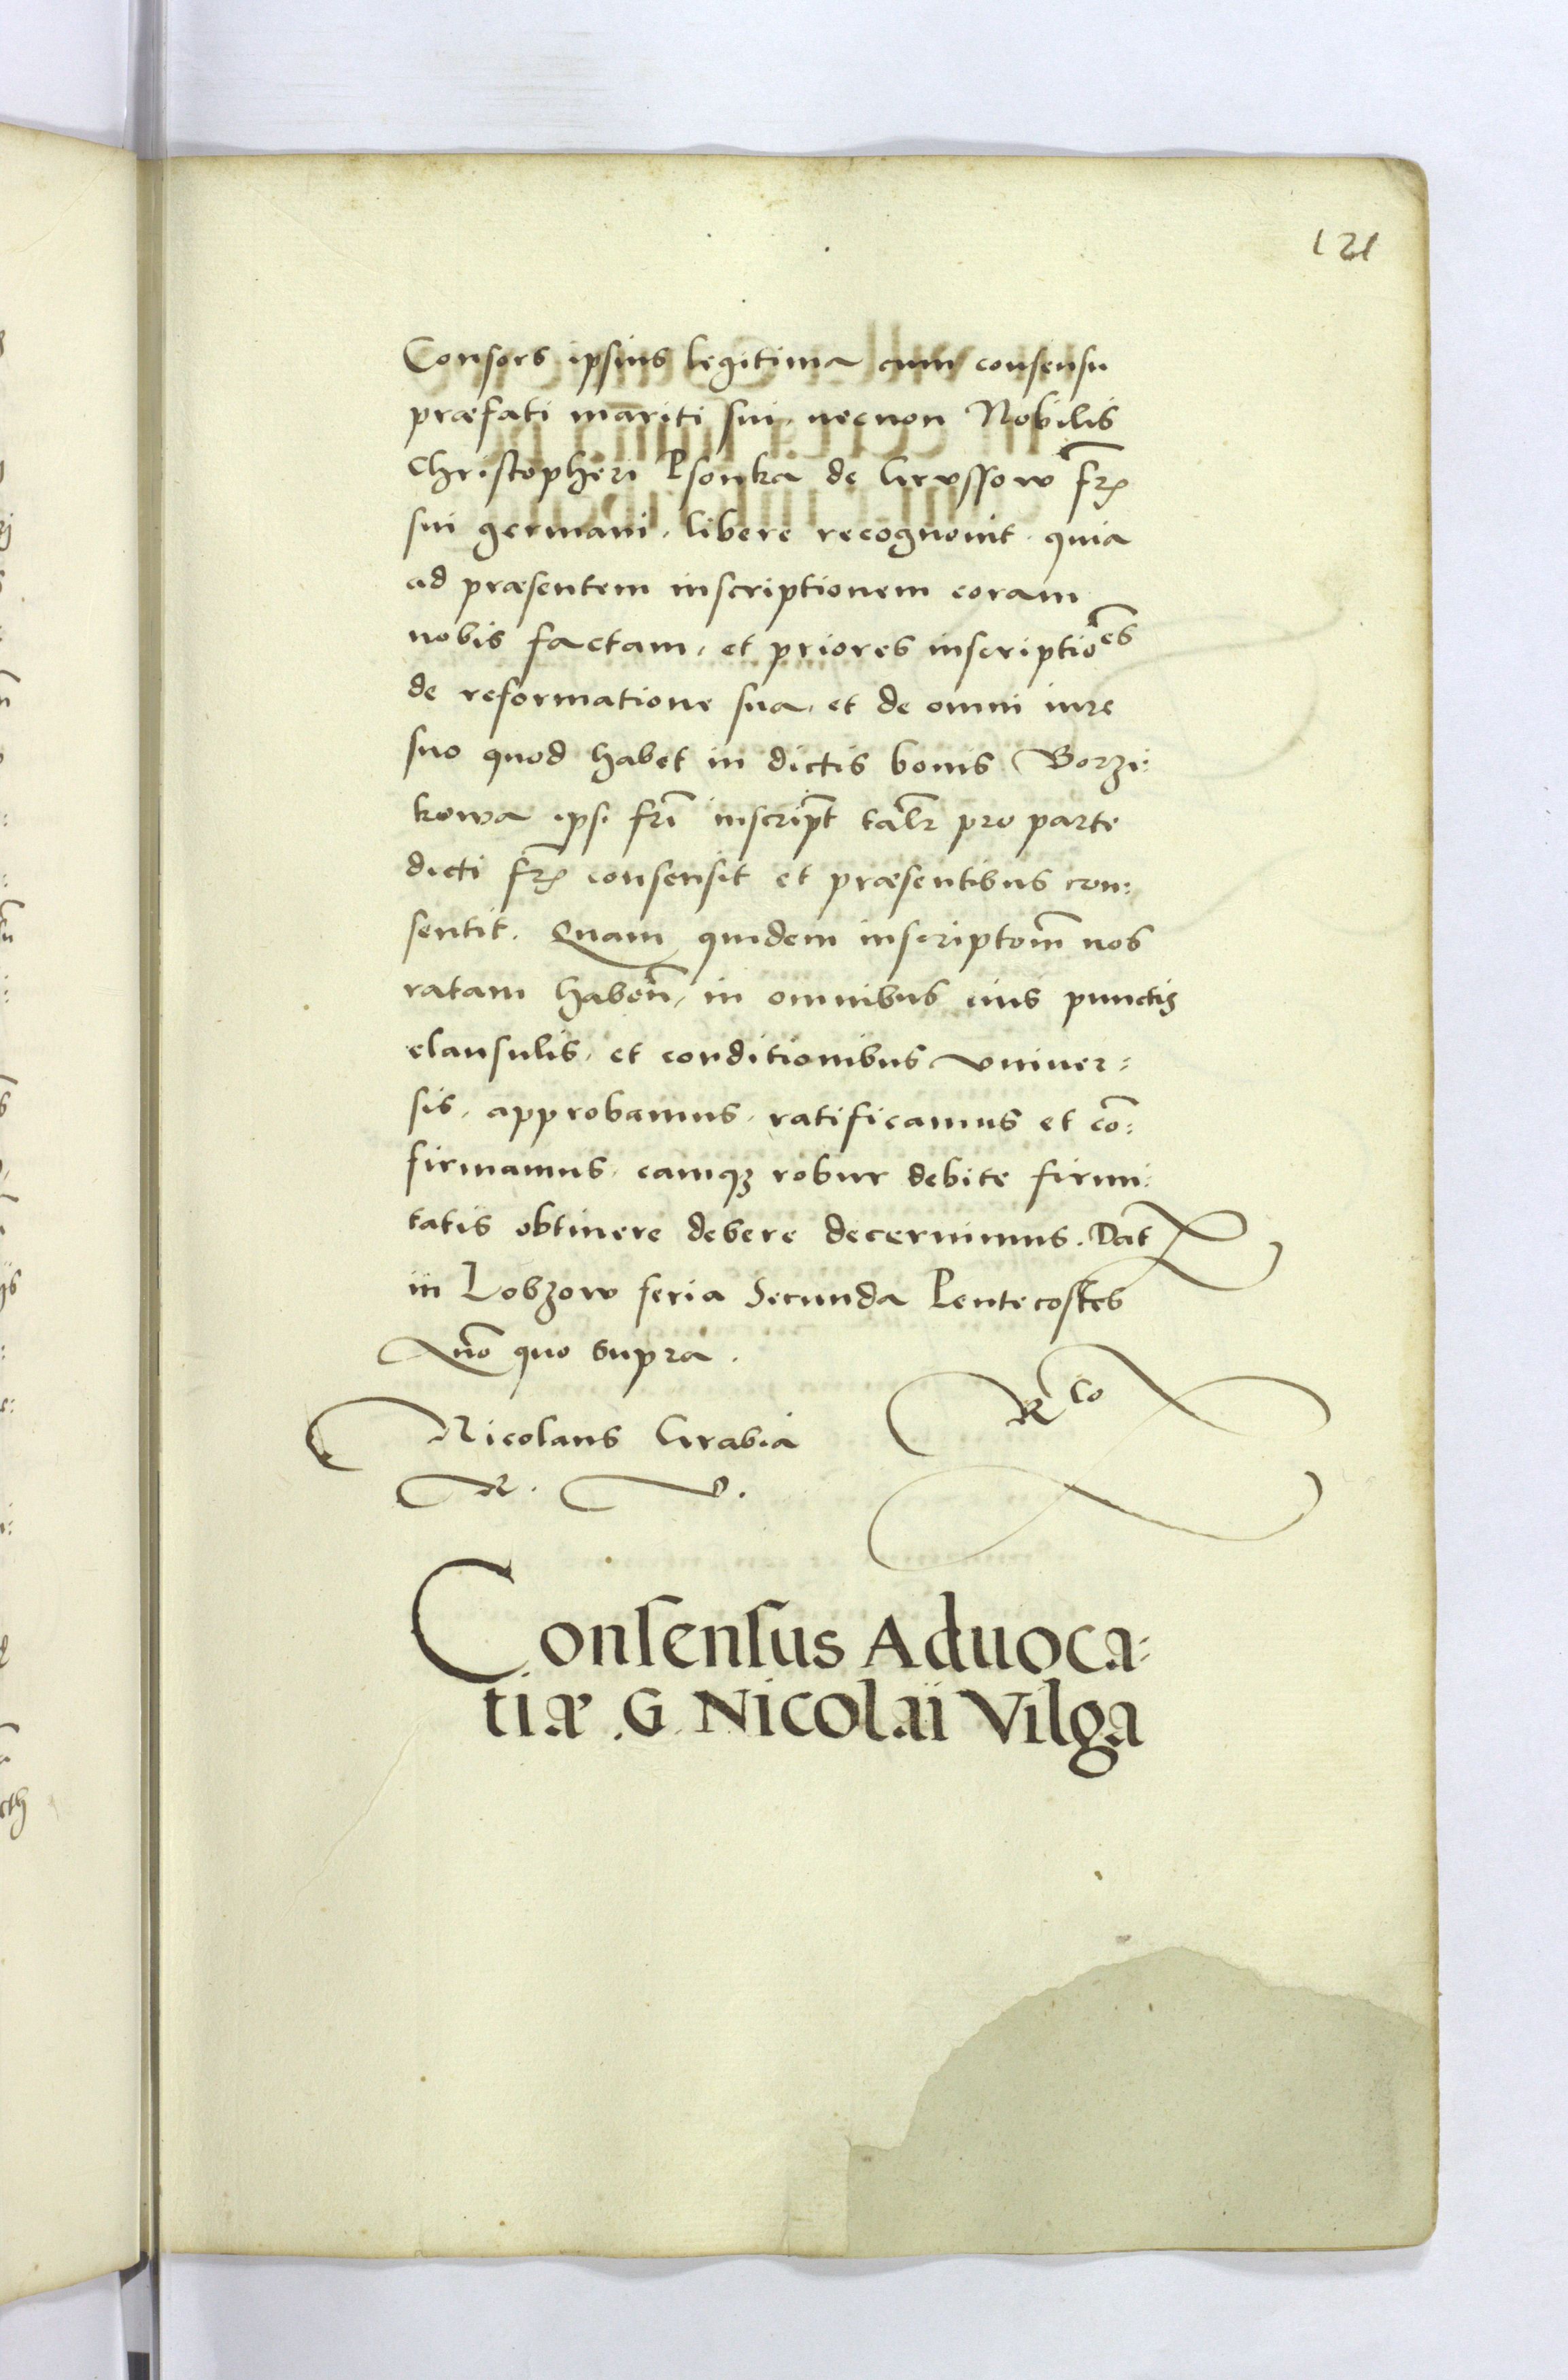 121
Consors ipsius legitima cum consensu
præfati mariti sui, necnon Nobilis
Christopheri Psonka de Grussow fr̄is
sui germani, libere recognouit quia
ad præsentem inscriptionem coram
nobis factam, et priores inscriptiōes
de reformatione sua, et de omni iure
suo quod habet in dictis bonis Borzi:
kowa ipsi fr̄i inscrip̄t tal̄r pro parte
dicti fr̄is consensit et præsentibus con:
sentit. Quam quidem inscriptōm̄ nos
ratam haben̄, in omnibus eius punctis
clausulis, et conditionibus vniuer:
sis, approbamus, ratificamus et cō:
firmamus, eamq3 robur debite firmi:
tatis obtinere debere decernimus. Dat̄
in Lobzow feria Secunda Pentecostes
Ano quo supra.
Nicolaus Grabia
R. V.
Consensus Aduoca:
tiæ .G. Nicolaii Vilga